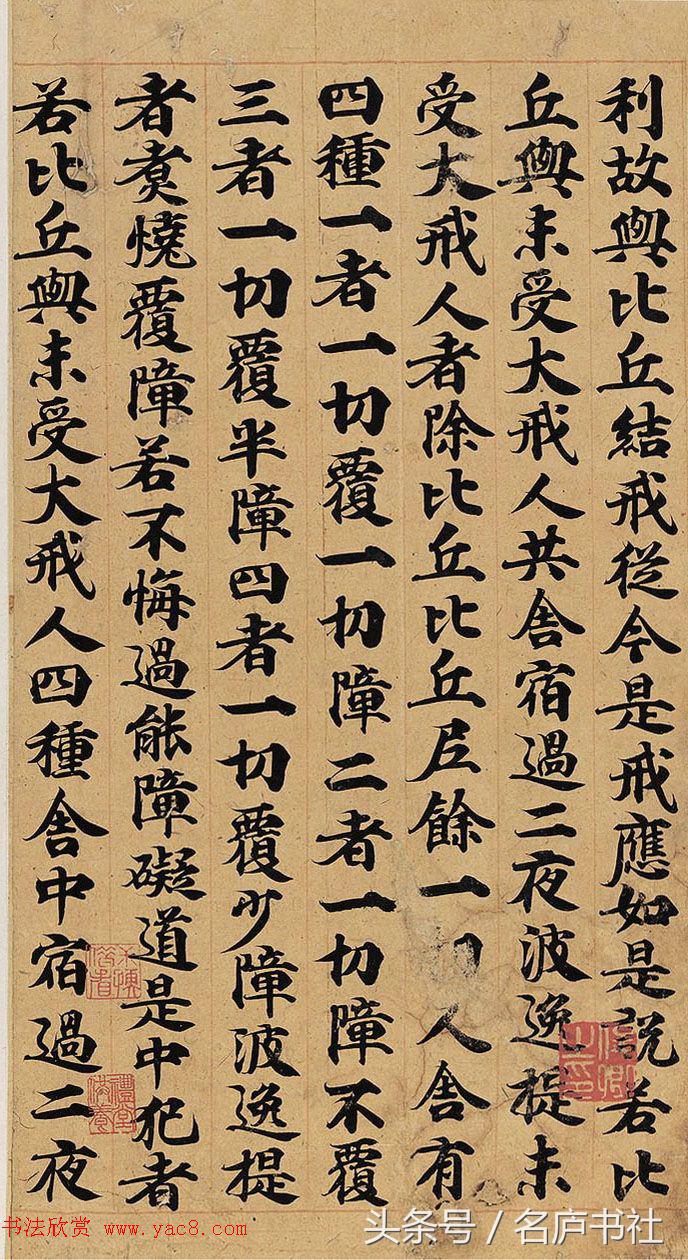 利故與比丘結戒從今是戒應如是説若比
丘與未受大戒人共舍宿過二夜波逸提未
受大戒人者除比丘比丘尼餘一切人舍有
四種一者一切覆一切障二者一切障不覆
三者一切覆半障四者一切覆少障波逸提
者煑燒覆障若不悔過能障礙道是中犯者
若比丘與未受大戒人四種舍中宿過二夜
书法欣赏 www.yac8.com
头条号／名庐书社